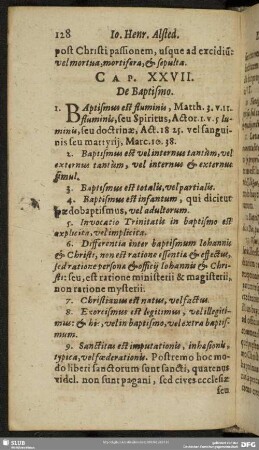 128 Io. Henr. Alsted.
post Christi passionem, usque ad excidiũ:
vel mortua, mortifera, & sepulta.
CAP. XXVII.
De Baptismo.
1. BAptismus est fluminis, Matth. 3. v. 11.
fluminis, seu Spiritus, Actor. 1. v. 5
luminis, seu doctrinæ, Act. 18 25. vel sangui-
nis seu martyrij, Marc. 10. 38.
2. Baptismus est vel internus tantùm, vel
externus tantùm, vel internus & externus
simul.
3. Baptismus est totalis, vel partialis.
4. Baptismus est infantum, qui dicitur
pædobaptismus, vel adultorum.
5. Invocatio Trinitatis in baptismo est
explicita, vel implicita.
6. Differentia inter baptismum Iohannis
& Christi, non est ratione essentiæ & effectus,
sed ratione personæ & officij Iohannis & Chri-
sti: seu, est ratione ministerii & magisterii,
non ratione mysterii.
7. Christianus est natus, vel factus.
8. Exorcismus est legitimus, vel illegiti-
mus: & hic, vel in baptismo, vel extra baptis-
mum.
9. Sanctitas est imputationis, inhæsionis,
typica, vel fœderationis. Postremo hoc mo-
do liberi sanctorum sunt sancti, quatenus
videl. non sunt pagani, sed cives ecclesiæ
seu
SLUB
DFG